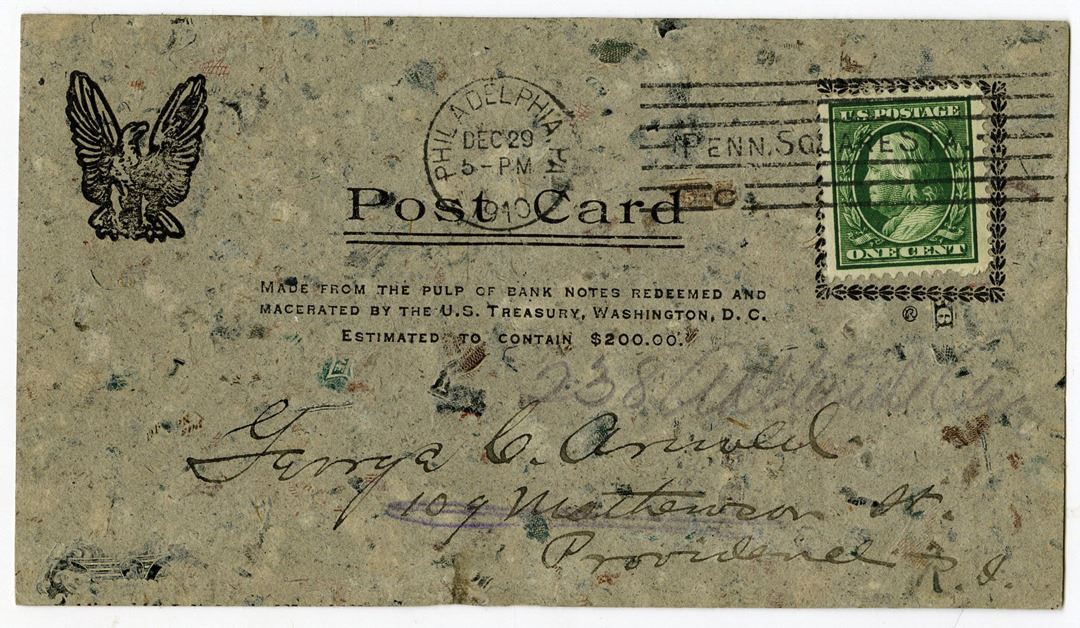 PHILADELPHIA, PA.
DEC 29
5 - PM
1910
PENN. SQUARE STA.
U.S. POSTAGE
ONE CENT
Post Card
MADE FROM THE PULP OF BANK NOTES REDEEMED AND
MACERATED BY THE U.S. TREASURY, WASHINGTON, D. C.
ESTIMATED TO CONTAIN $200.00.
238
George C. Arnold
109 Mathewson St.
Providence
R. I.